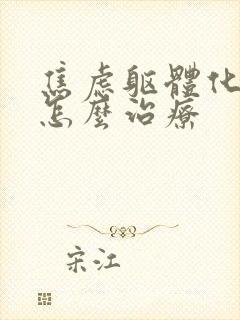 焦虑躯體化
怎麼治療
宋江